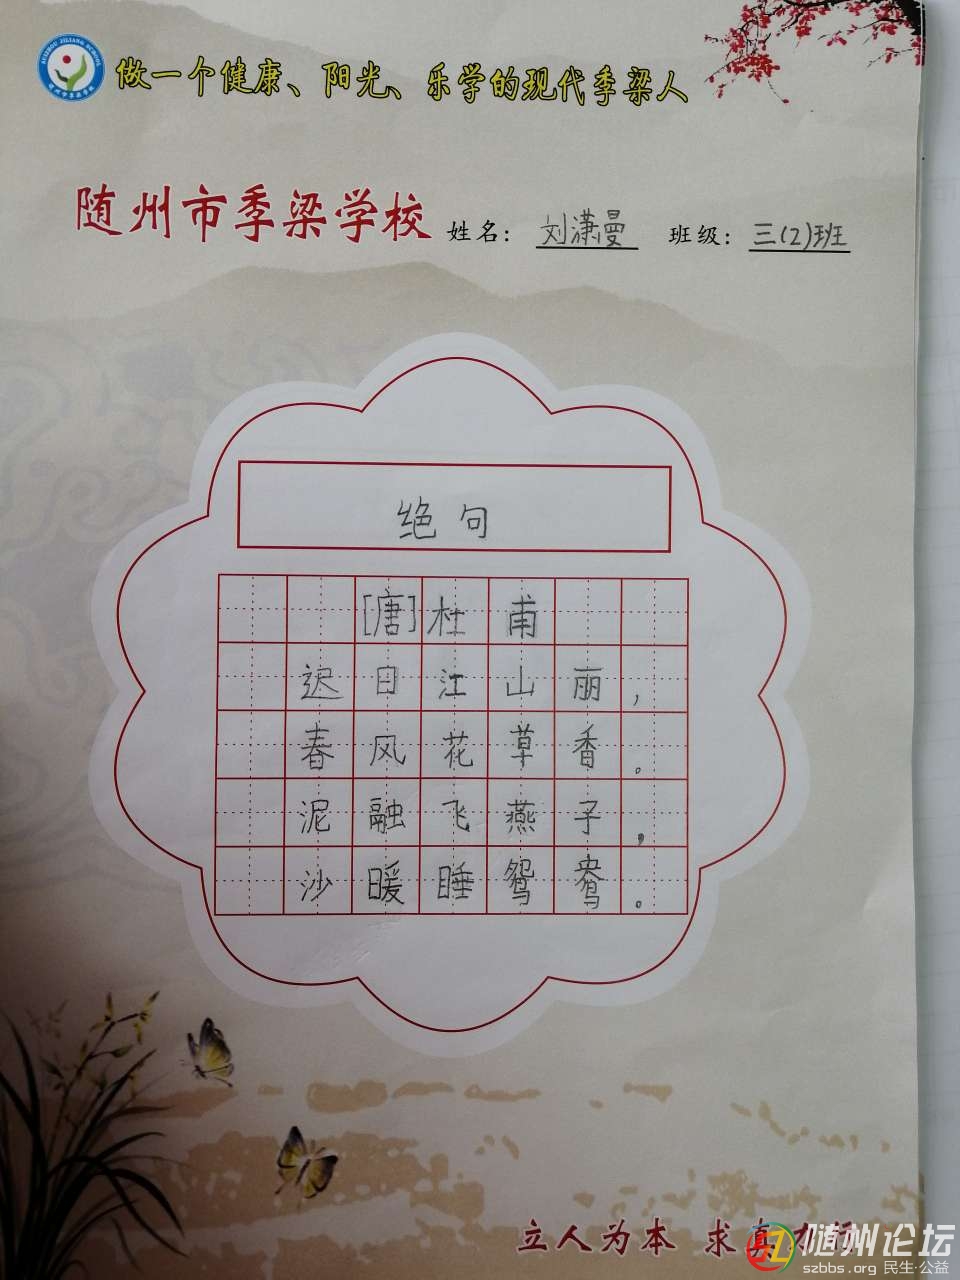 做一个健康、阳光、乐学的现代季梁人
随州市季梁学校 姓名: 刘潇曼 班级: 三(2)班
绝句
[唐]杜甫
迟日江山丽,
春风花草香。
泥融飞燕子,
沙暖睡鸳鸯。
立人为本 求真
随州论坛
szbbs.org 民生·公益